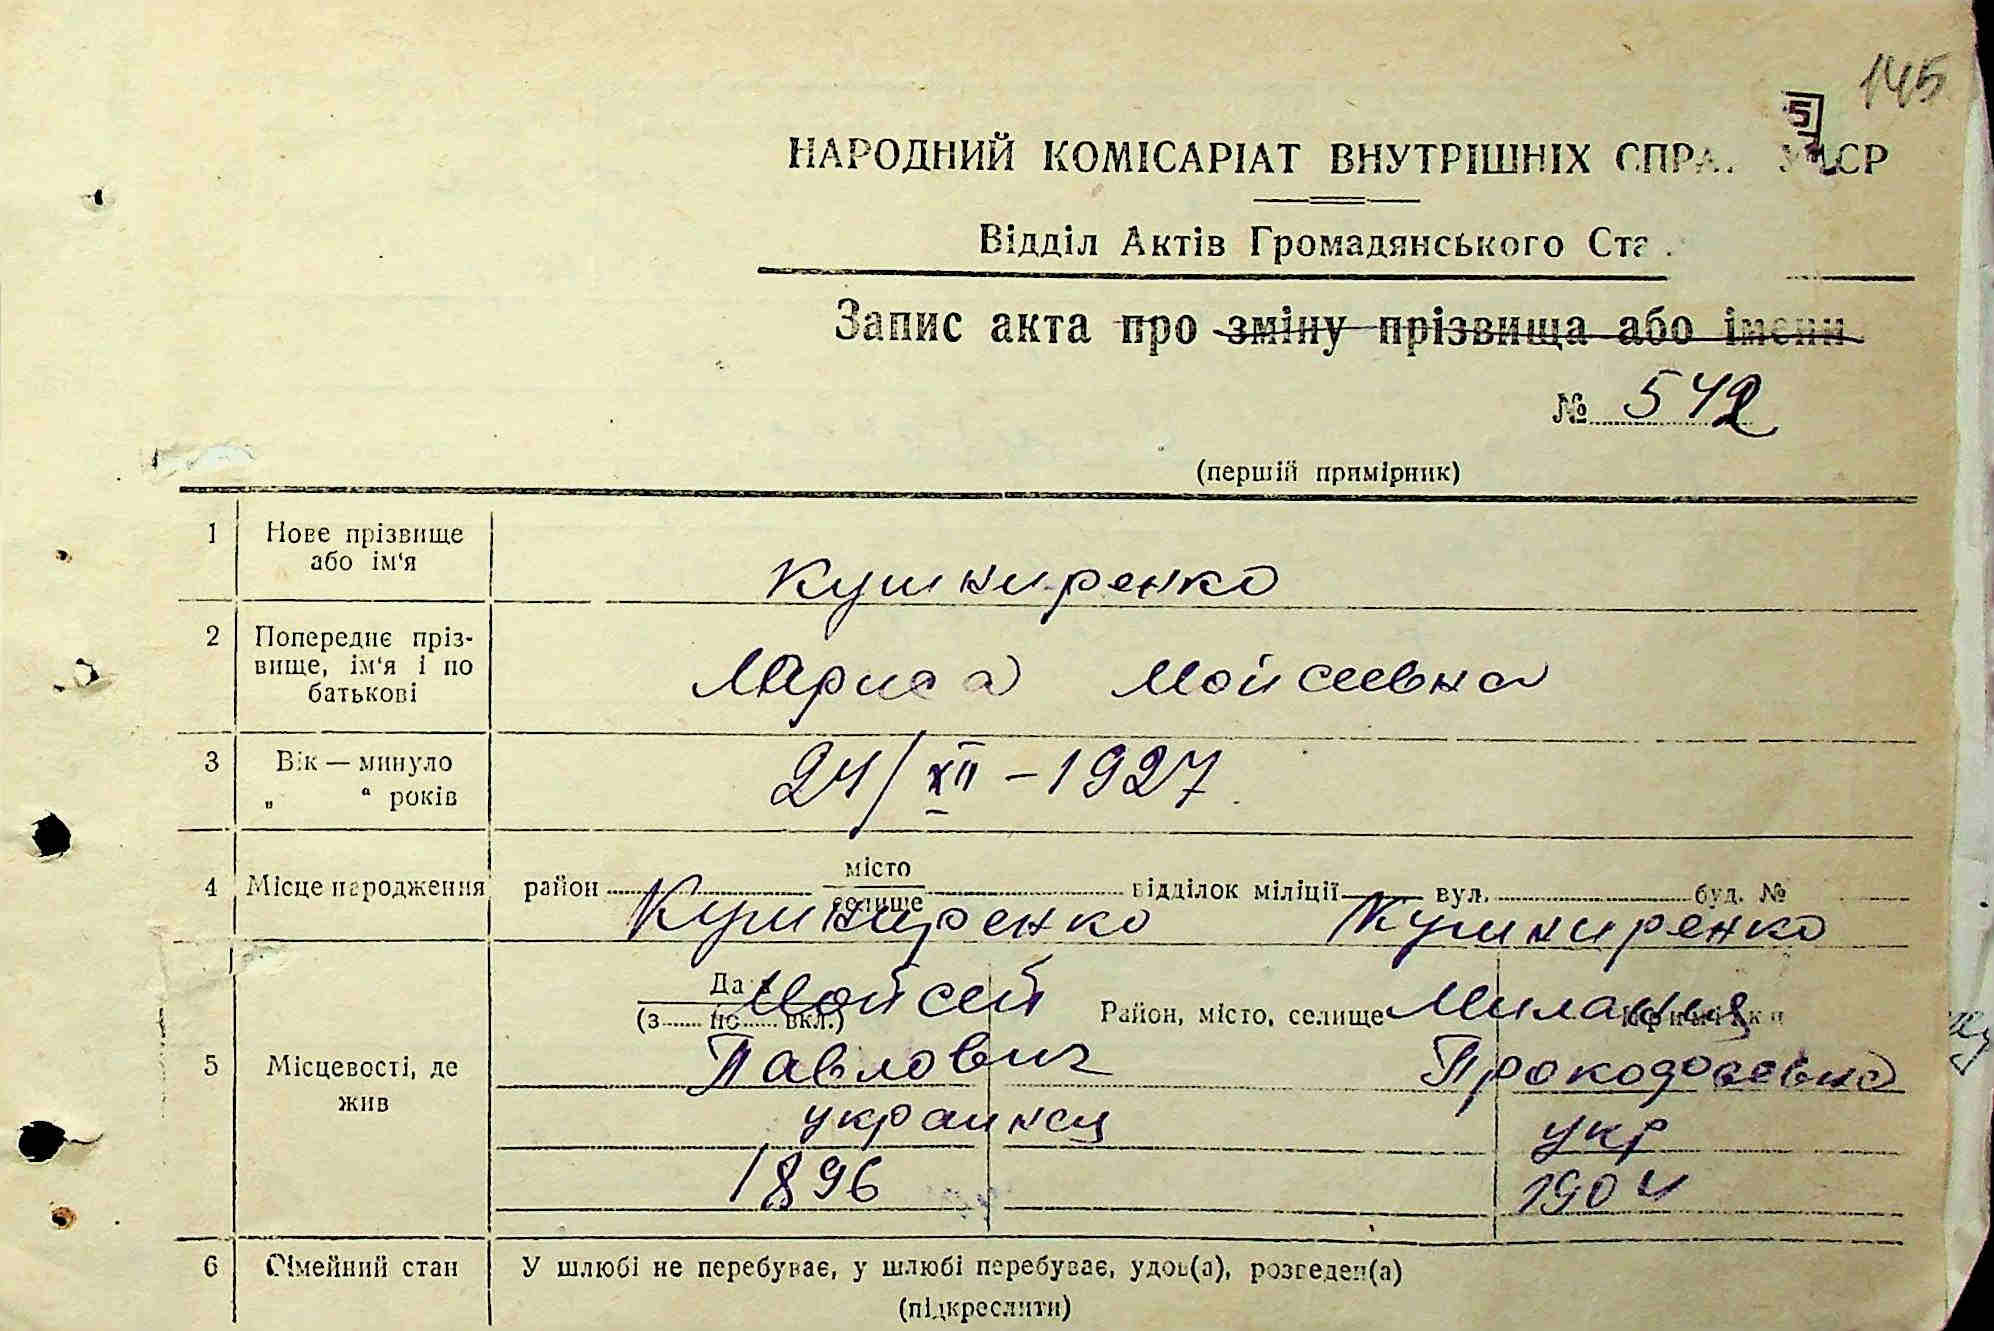 145
5
НАРОДНИЙ КОМІСАРІАТ ВНУТРІШНІХ СПРА. У СР
Відділ Актів Громадянського Ста
Запис акта про зміну прізвища або імени
№ 542
(перший примірник)
1 Нове прізвище або ім'я
Кушниренко
2 Попереднє пріз-
вище, ім'я і по
батькові
Лариса Мойсеевна
3 Вік — минуло
„ “ років
24/XII – 1927
4 Місце народження район місто селище відділок міліції вул. буд. №
Кушниренко Кушниренко
5 Місцевості, де
жив
Да
(з по вкл.) Район, місто, селище
Мойсей Милания
Павлович
украинец укр
1896 1904
6 Сімейний стан У шлюбі не перебуває, у шлюбі перебуває, удов(а), розведен(а)
(підкреслити)